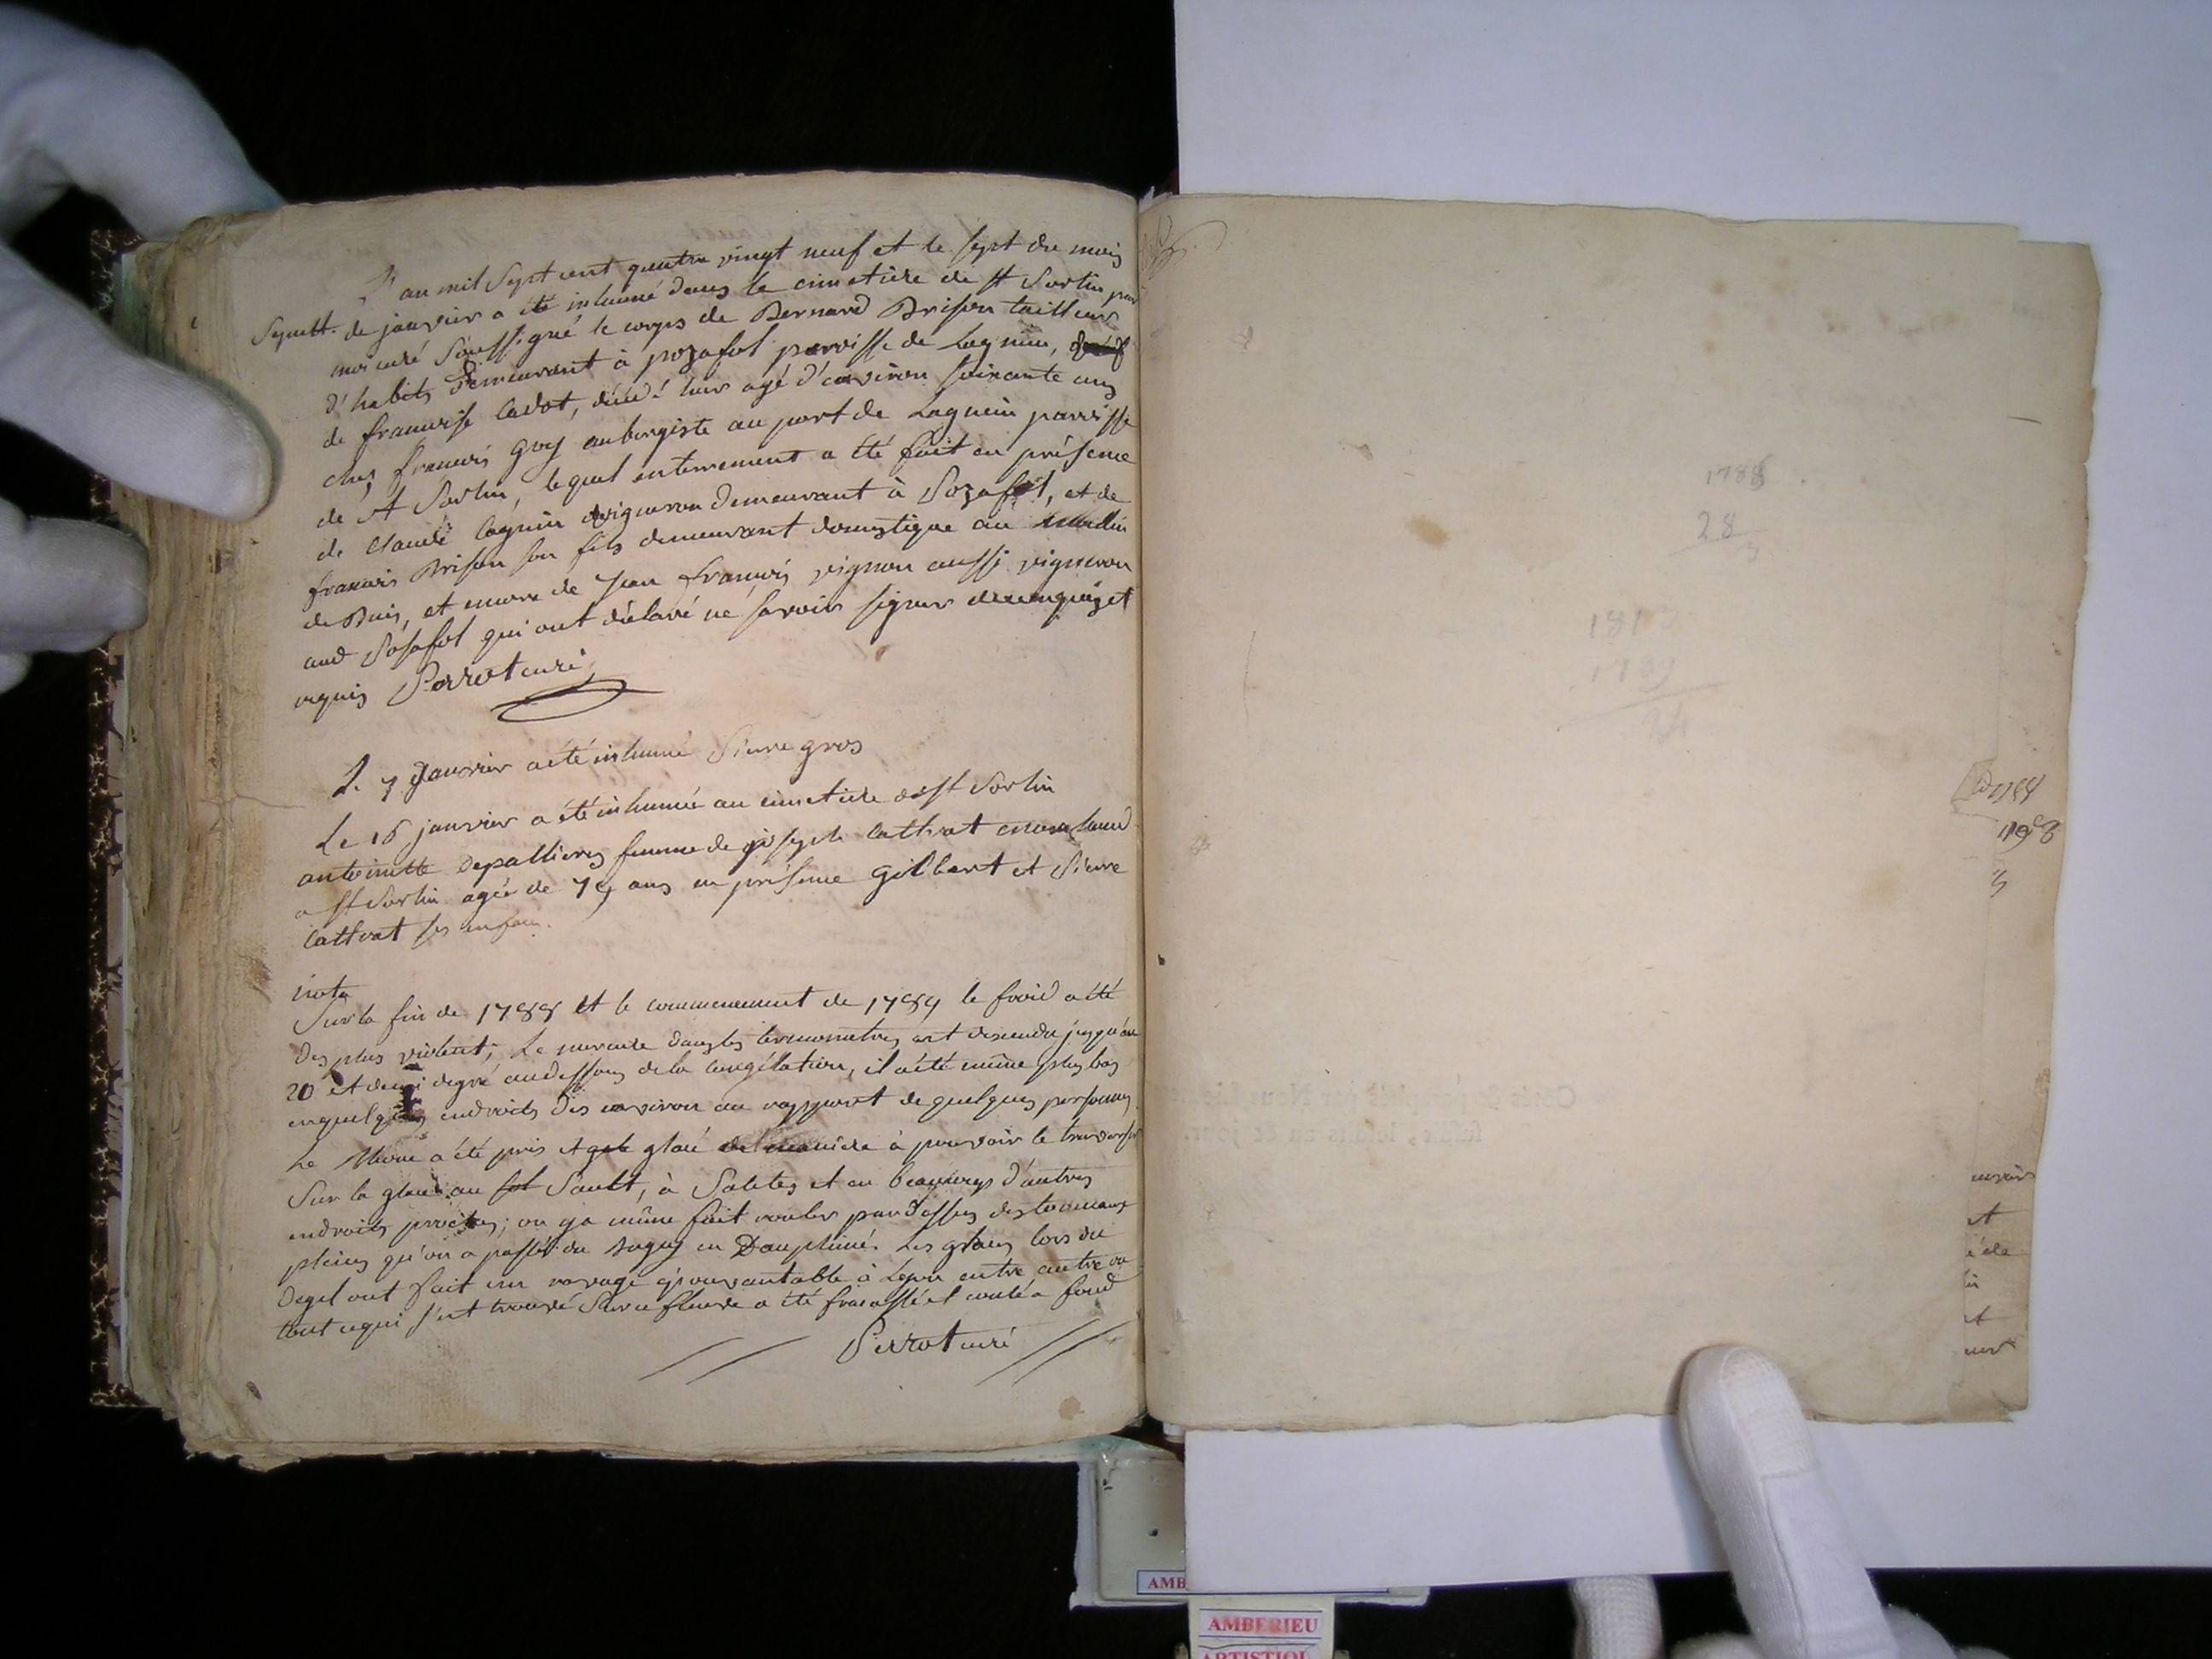 L'an mil Sept cent quatre vingt neuf et le sept du mois
Sepult. de janvier a été inhumé dans le cimetière de St Sorlin par
moi curé soussigné le corps de Bernard Brison tailleur
d'habits demeurant à pozafol paroisse de Lagnieu,
de francoise Cadot, décédé hier agé d'environ soixante ans
chez francois Guy aubergiste au port de Lagnieu paroisse
de St Sorlin, lequel enterrement a été fait en présence
de Claude Cagnin vigneron demeurant à Pozafol, et de
francois Brison son fils demeurant domestique au
de Buis, et encore de Jean francois vignon aussi vigneron
aud Posafol qui ont déclaré ne savoir signer de ce enquis et
requis Perrot curé
L. 7 Janvier a été inhumé Pierre gros
Le 16 janvier a été inhumée au cimetiere de St Sorlin
antoinette Depallieres femme de joseph Cattrat
a St Sorlin agée de 79 ans en présence Gilbert et Pierre
Cattrat ses enfans.
nota
Sur la fin de 1788 et le commencement de 1789 le froid a été
des plus violent; Le mercure dans les termometres est descendu jusqu'au
20 et demi degré audessous de la Congélation, il a été même plus bas
en quelques endroits des environ au rapport de quelques personnes.
Le Rhone a été pris et gelé glacé de manière à pouvoir le traverser
Sur la glace au fol Sault, à Saletes et en beaucoup d'autres
endroits proches; on y a même fait rouler par dessus des tonneaux
pleins qu'on a passés du Bugey en Dauphiné. Les glaces lors du
degel ont fait un ravage epouvantable à Lyon entre autre ou
tout ce qui s'est trouvé Sur ce fleuve a été fracassé et coulé a fond
Perrot curé
1788
28
1789
1788
et
AMB
AMBERIEU
ARTISTIQU